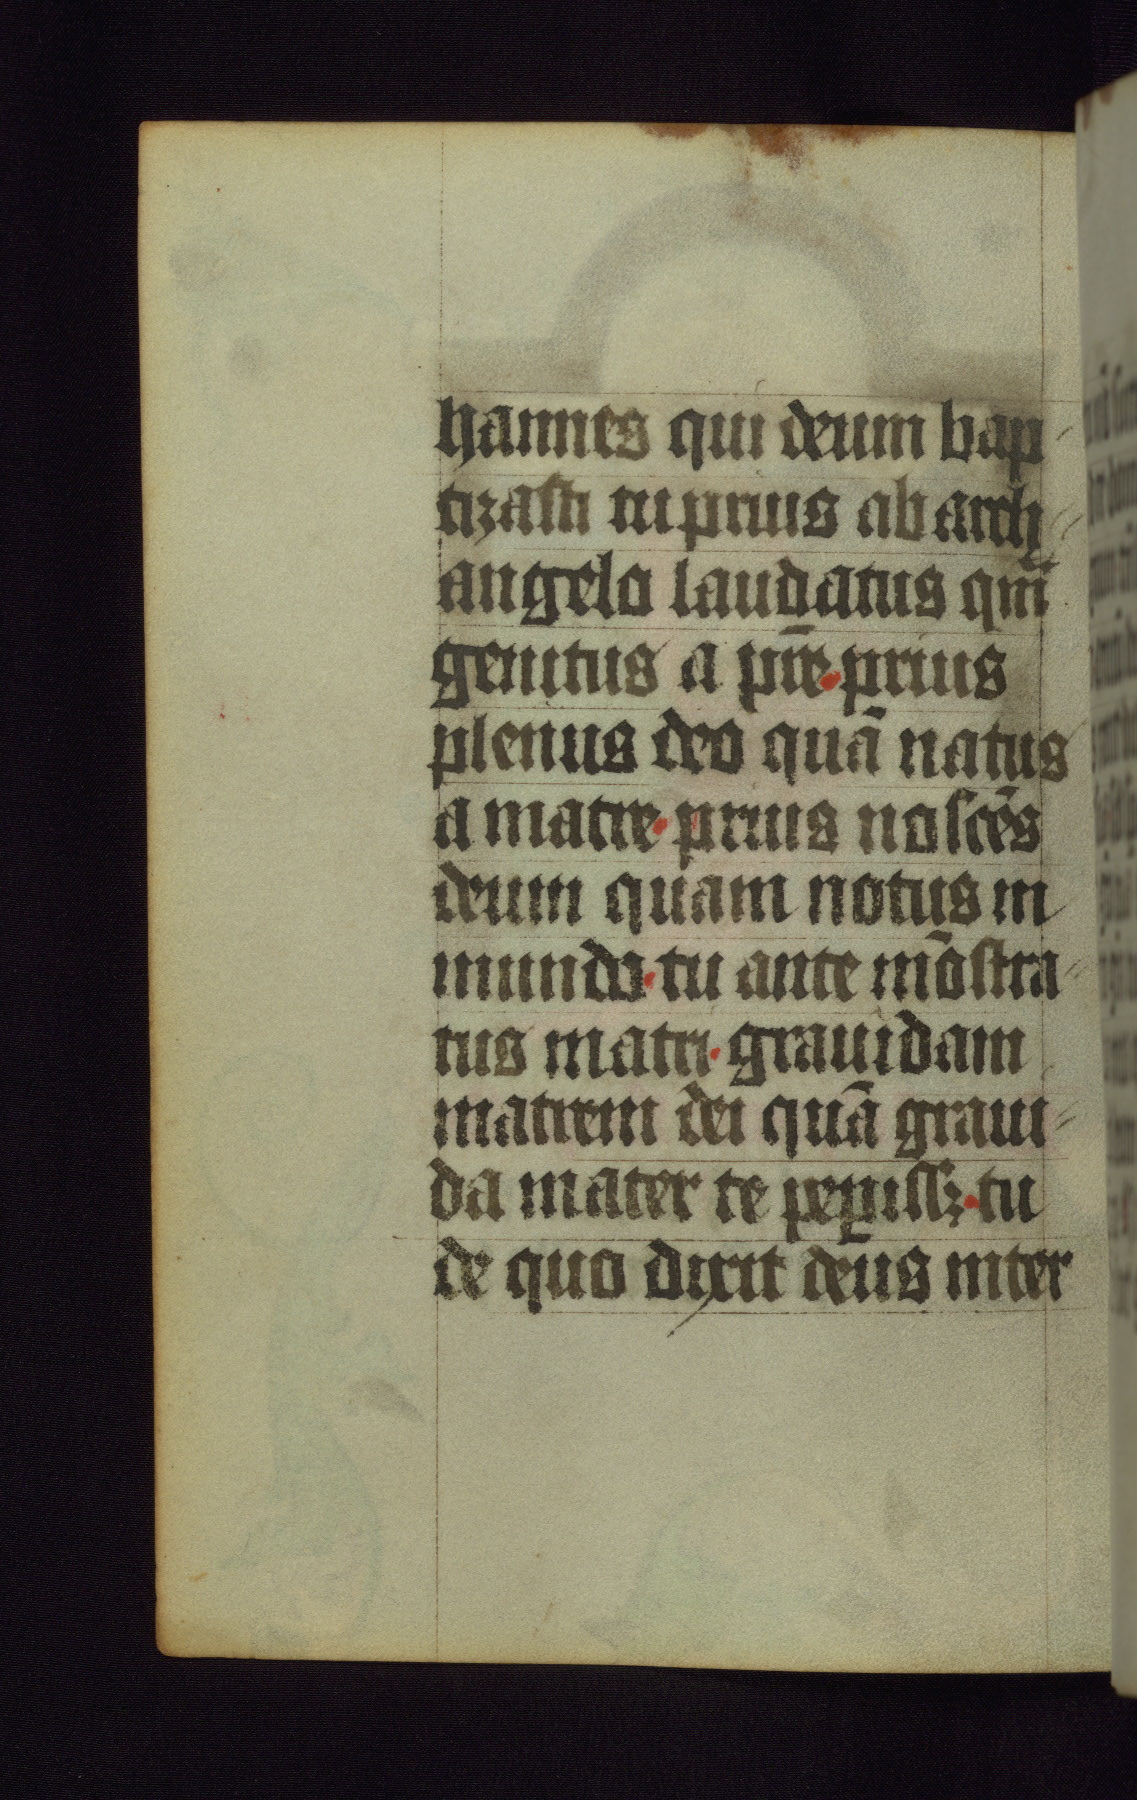 hannes qui deum bap
tizasti tu prius ab arch
angelo laudatus qm̄
genitus a pr̄e · prius
plenus deo quā natus
a matre · prius noscēs
deum quam notus in
mundo · tu ante mōstra
tus matri · grauidam
matrem dei quā graui
da mater te peꝑissꝫ · tu
de quo dixit deus inter